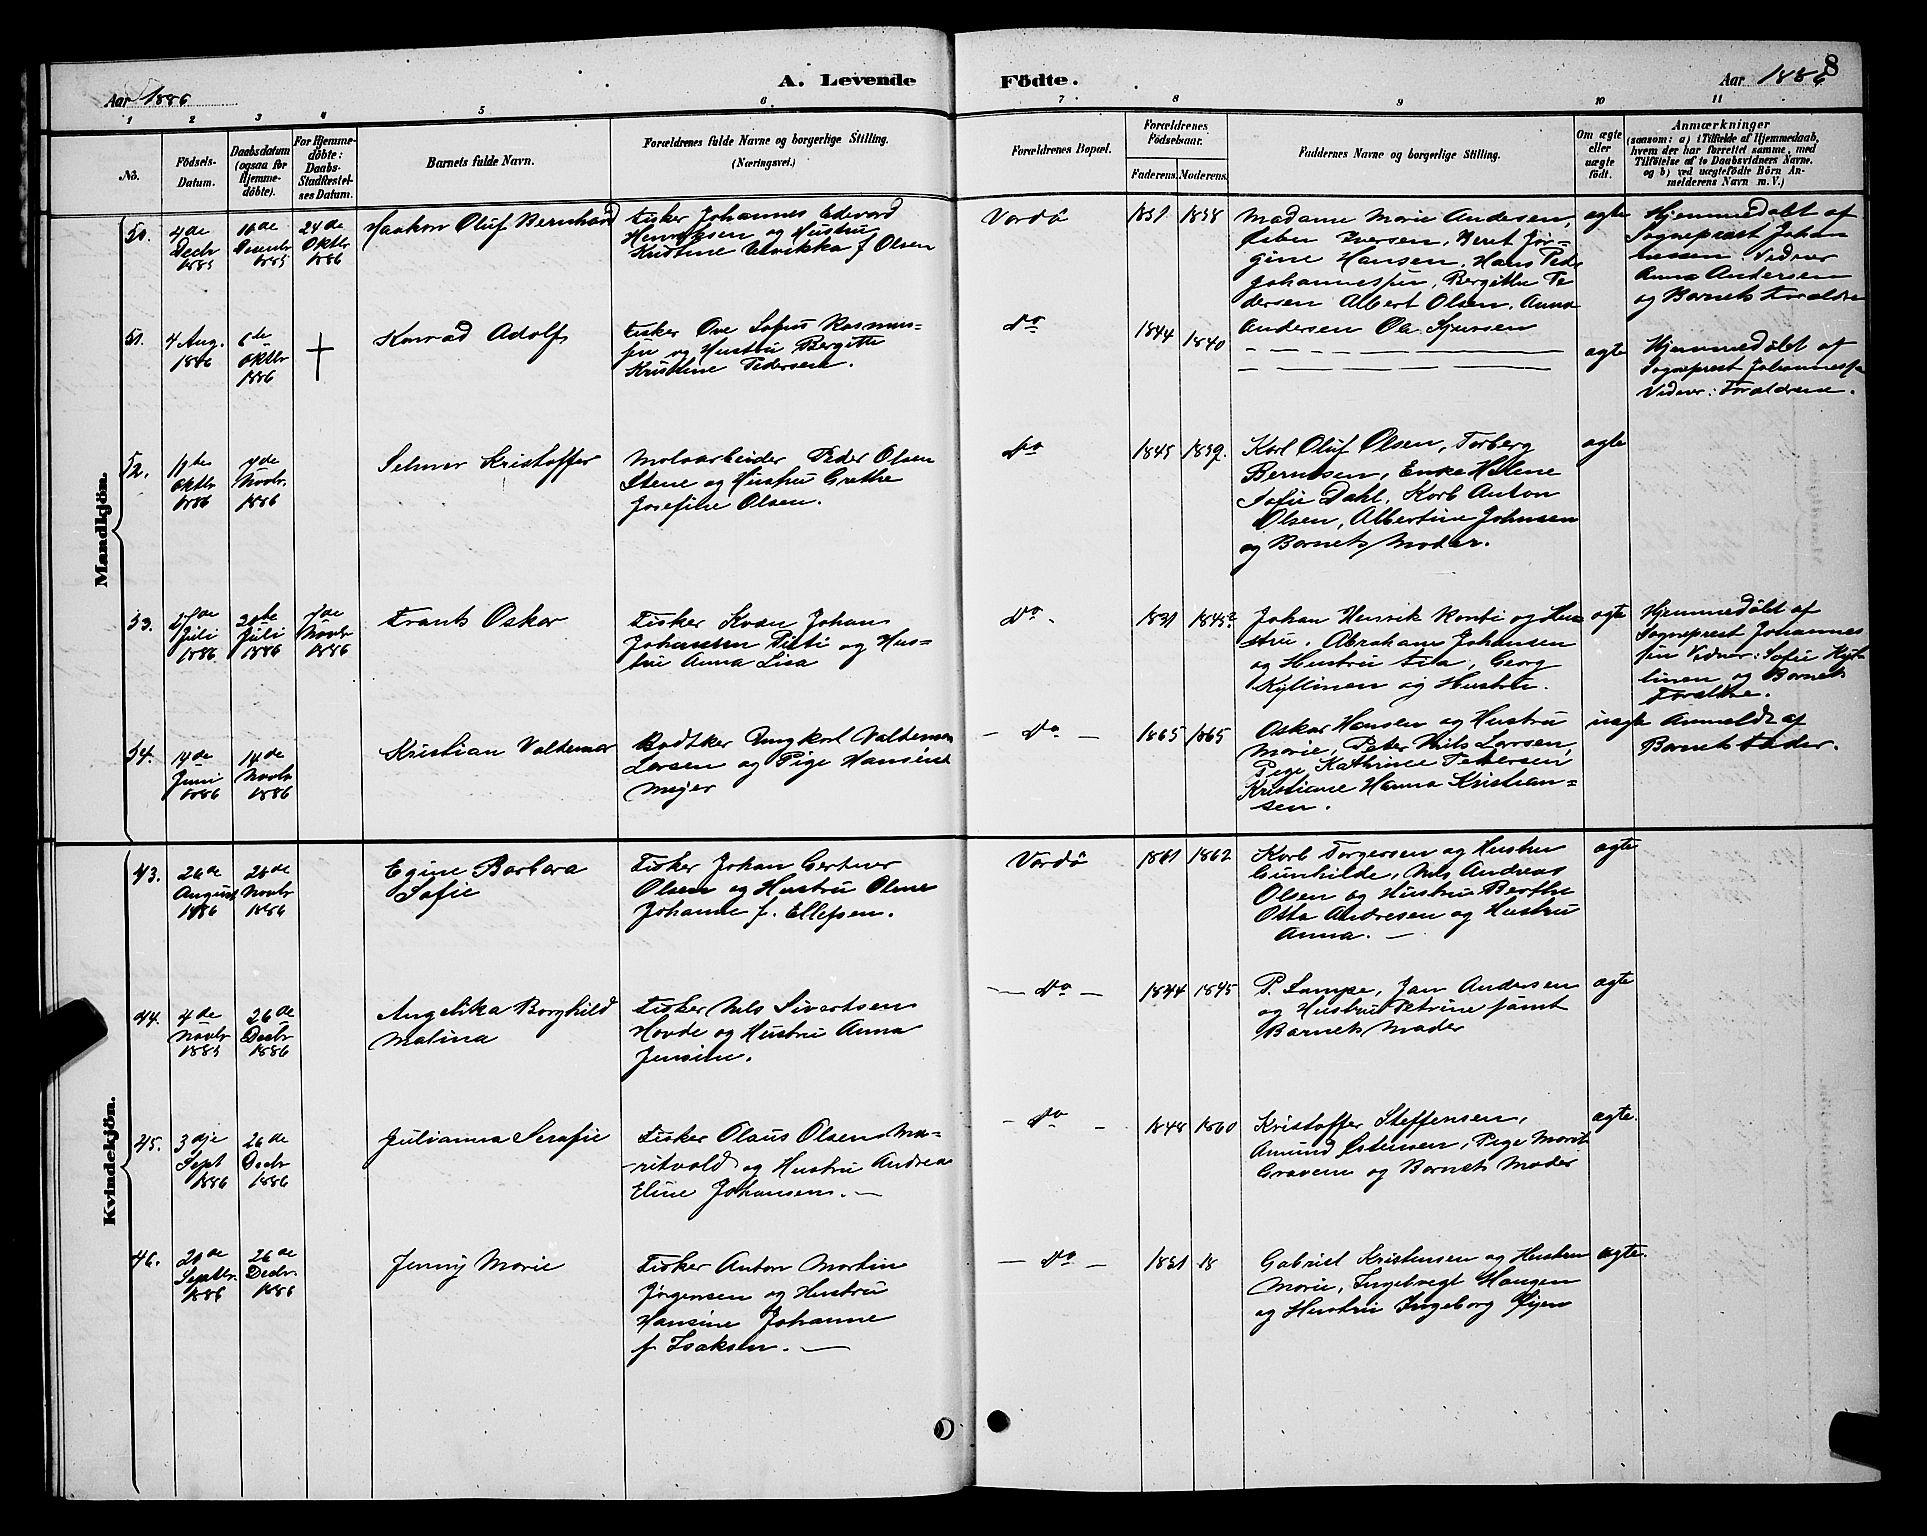 8
Aar 1886
A. Levende Födte.
Aar 1886
1 2 3 4 5 6 7 8 9 10 11
No.
Födsels-Datum.
Daabsdatum (ogsaa for Hjemme-döbte).
For Hjemme-döbte: Daabs-Stadfæstel-ses Datum.
Barnets fulde Navn.
Forældrenes fulde Navne og borgerlige Stilling. (Næringsvei.)
Forældrenes Bopæl.
Forældrenes Födselsaar.
Faderens. Moderens.
Faddernes Navne og borgerlige Stilling.
Om ægte eller uægte födt.
Anmærkninger
(saasom: a) i Tilfælde af Hjemmedaab, hvem der har forrettet samme, med Tilföielse af to Daabsvidners Navne. og b) ved uægtefödte Börn Anmelderens Navn m. V.)
Mandkjön.
50.
4de Decbr 1885
16de Decembr 1885
24de Oktbr 1886
Haakon Oluf Bernhard
Fisker Johannes Edevard
Henriksen og Hustru
Kristine Ulrikka f Olsen
Vardö
1851 1858
Madame Marie Andersen,
Iversen, Beret Jör-
gine Hansen, Hans Peder
Johannessen, Bergitte Pe
dersen Albert Olsen, Anna
Andersen Ole Sjursen
ægte
Hjemmedöbt af
Sogneprest Johan
nessen. Vidner
Anna Andersen
og Barnets Forældre
51.
4 Aug. 1886
6te Oktbr 1886
Konrad Adolf
Fisker Ove Sofus Rasmus-
sen og Hustru Bergitte
Kristine Pedersen.
do
1844 1840
ægte
Hjemmedöbt af
Sogneprest Johannessen
Vidner: Forældrene.
52.
Oktbr 1886
7de Novbr. 1886
Selmer Kristoffer
Moloarbeider Peder Olsen
Stene og Hustru Grethe
Josefine Olsen.
do
1845 1859.
Karl Oluf Olsen, Torberg
Berntsen, Enke Helene
Sofie Dahl, Karl Anton
Olsen, Albertine Johnsen
og Barnets Moder.
ægte
53.
Juli 1886
Juli 1886
7de Novbr 1886
Frants Oskar
Fisker Kvæn Johan
Johanssen Pieti og Hus-
tru Anna Lisa
Do.
1831 1845?
Johan Henrik Konti og Hu
stru, Abraham Johansen
og Hustru Eva, Georg
Kyllinen og Hustru.
ægte
Hjemmedöbt af
Sogneprest Johannes
sen Vidner: Sofie Kyl
linen og Barnets
Forældre.
54.
14de Juni 1886
14de Novbr 1886
Kristian Valdemar
Bödtker Ungkarl Valdemar
Larsen og Pige Hansine
Mejer
Do
1865 1865
Oskar Hansen og Hustru
Marie, Peter Nils Larsen,
Pige Kathrine Petersen
Kristiane Hanna Kristian-
sen.
uægte
Anmeldt af
Barnets Fader.
Kvindekjön.
43.
26de August 1886
26de Novbr 1886
Egine Barbara
Sofie
Fisker Johan Gertner
Olsen og Hustru Oline
Johanne f. Ellefsen.
Vardö
1861 1862
Karl Torgersen og Hustru
Gunhilde, Nils Andreas
Olsen og Hustru Berthe
Otto Andresen og Hustru
Anna.
ægte
44.
4de Novbr 1885
26de Decbr 1886
Angelika Borghild
Malina
Fisker Nils Sivertsen
Hovde og Hustru Anna
Jensine.
Do
1844 1845
P. Lampe, Jan Andersen
og Hustru Petrine samt
Barnets Moder
ægte
45.
3dje Sept 1886
26de Decbr 1886
Julianna Serafie
Fisker Olaus Olsen Ma-
ritvold og Hustru Andrea
Eline Johansen.
Do
1848 1860
Kristoffer Steffensen,
Amund Estensen, Pige Marit
Gravem og Barnets Moder
ægte.
46.
Septbr. 1886
26de Decbr. 1886
Jenny Marie
Fisker Anton Martin
Jörgensen og Hustru
Hansine Johanne
f. Isaksen.
Do
1851 18
Gabriel Kristensen og Hustru
Marie, Ingebregt Haugen
og Hustru Ingeborg Öyen
ægte.